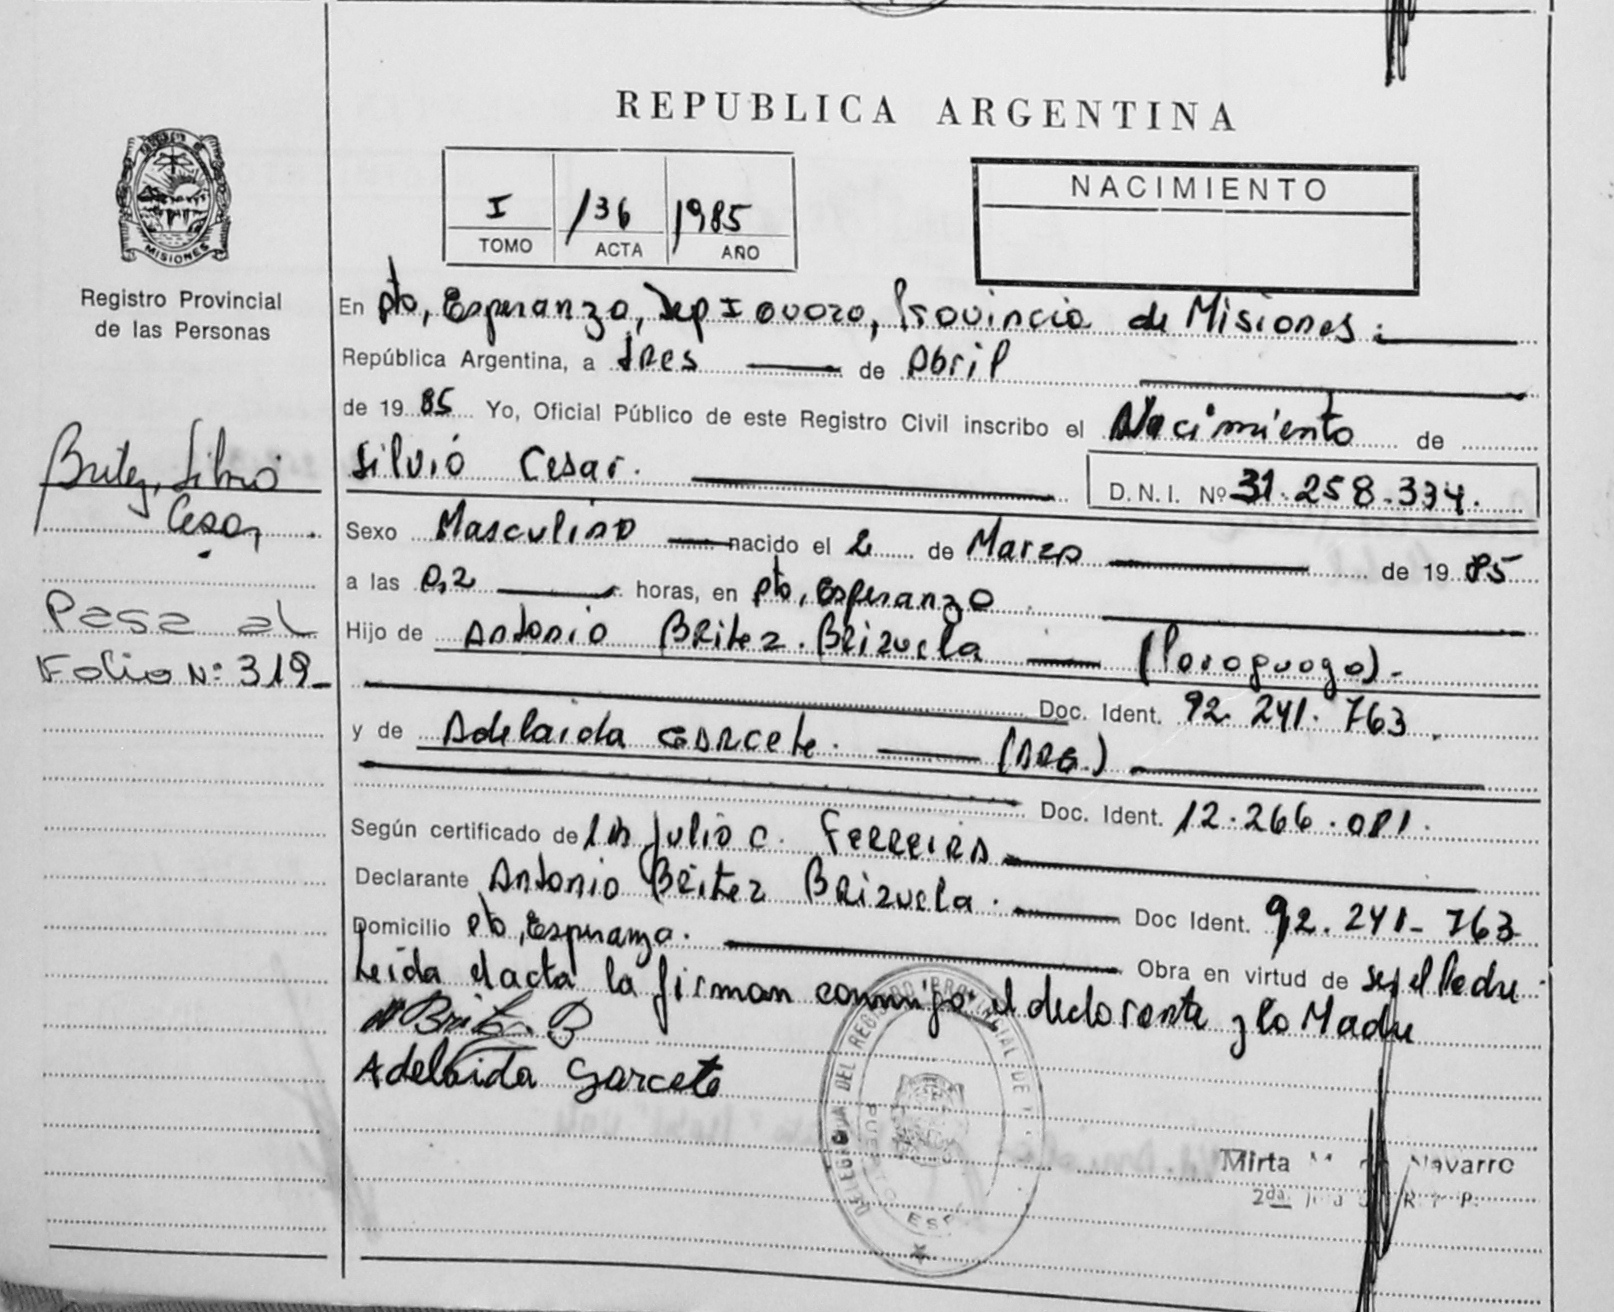 REPUBLICA ARGENTINA
MISIONES
Registro Provincial
de las Personas
I /36 1985
TOMO ACTA AÑO
NACIMIENTO
En Pto, Esperanza, Dep Iguazu, Provincia de Misiones.
República Argentina, a tres de Abril
de 19 85 Yo, Oficial Público de este Registro Civil inscribo el Nacimiento de
Silvio Cesar.
D. N. I. Nº 31.258.334.
Britez, Silvio
Cesar
Sexo Masculino nacido el 2 de Marzo de 19 85
a las 0,2 horas, en Pto, Esperanza
Pasa al
Folio Nº: 319
Hijo de Antonio Britez. Brizuela (Paraguayo).
Doc. Ident. 92.241.763.
y de Adelaida Garcete. (ARG.)
Doc. Ident. 12.266.081.
Según certificado de Julio C. Ferreira
Declarante Antonio Britez Brizuela. Doc Ident. 92.241-763
Domicilio Pto, Esperanza. Obra en virtud de ser el Padre
Leida el acta la firman conmigo el declarante y la Madre
Britez B
Adelaida Garcete
DEL REGISTRO PROVINCIAL DE
PUERTO
Mirta Navarro
2da R. P.